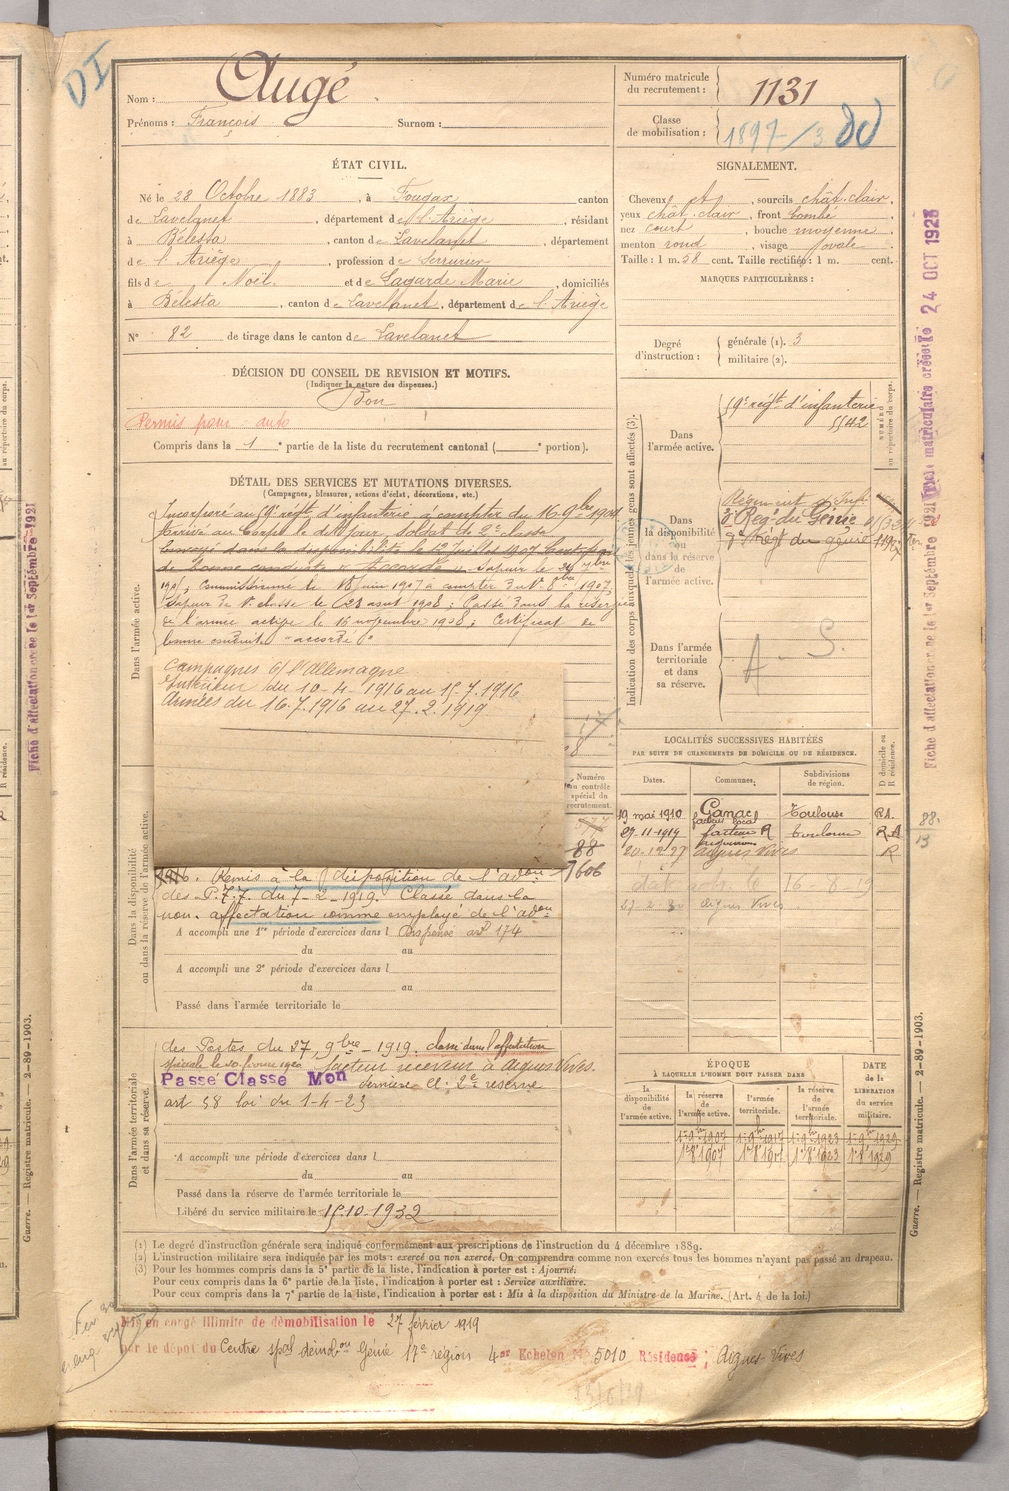 DI
Nom : Augé
Prénoms : François Surnom :
Numéro matricule du recrutement : 1131
Classe de mobilisation : 1897/3
ÉTAT CIVIL.
Né le 28 Octobre 1883, à Fougax canton
de Lavelanet, département de l'Ariège, résidant
à Bélesta, canton de Lavelanet, département
de l'Ariège, profession de Serrurier
fils de Noël et de Lagarde Marie, domiciliés
à Bélesta, canton de Lavelanet, département de l'Ariège
N° 82 de tirage dans le canton de Lavelanet
SIGNALEMENT.
Cheveux et, sourcils chât. clair,
yeux chât. clair, front bombé,
nez court, bouche moyenne,
menton rond, visage ovale
Taille : 1 m. 58 cent. Taille rectifiée : 1 m. cent.
MARQUES PARTICULIÈRES :
Degré d'instruction : générale (1). 3
militaire (2).
DÉCISION DU CONSEIL DE REVISION ET MOTIFS.
(Indiquer la nature des dispenses.)
Bon
Permis pour auto
Compris dans la 1 e partie de la liste du recrutement cantonal ( e portion).
DÉTAIL DES SERVICES ET MUTATIONS DIVERSES.
(Campagnes, blessures, actions d'éclat, décorations, etc.)
Dans l'armée active.
Incorporé au 59e régt d'infanterie à compter du 16 9bre 1904
Arrivé au Corps le dit jour, soldat de 2e classe
envoyé dans la disponibilité le 12 juillet 1907 Certificat
de bonne conduite "Accordé". Sapeur le 7bre
1907, commissionné le 18 juin 1907 à compter du 1907,
Sapeur de 1e classe le 23 août 1908 ; Passé dans la réserve
de l'armée active le 16 novembre 1908 ; Certificat de
bonne conduite "accordé"
Campagnes c/ l'Allemagne
Intérieur du 10-4-1916 au 15.7.1916
Armées du 16.7.1916 au 27.2.1919
Numéro au contrôle spécial du recrutement.
88
1606
Dans la disponibilité ou dans la réserve de l'armée active.
Remis à la disposition de l'adon
des P.T.T. du 7-2-1919. Classé dans la
non. affectation comme employé de l'adon
A accompli une 1re période d'exercices dans l Dispensé art 174
du au
A accompli une 2e période d'exercices dans l
du au
Passé dans l'armée territoriale le
Dans l'armée territoriale et dans sa réserve.
des Postes du 27 9bre 1919. classé dans l'affectation
spéciale le 20 février 1920 facteur receveur à Aigues Vives.
Passé Classe Mon dernière et 2e réserve
art 58 loi du 1-4-23
A accompli une période d'exercices dans l
du au
Passé dans la réserve de l'armée territoriale le
Libéré du service militaire le 15.10.1932
Indication des corps auxquels les jeunes gens sont affectés (3).
NUMÉRO au répertoire du corps.
Dans l'armée active.
59e régt d'infanterie
5542
Dans la disponibilité ou dans la réserve de l'armée active.
Régiment d'Inf
Reg. du Génie
Régt du génie
Dans l'armée territoriale et dans sa réserve.
A. S.
LOCALITÉS SUCCESSIVES HABITÉES
PAR SUITE DE CHANGEMENTS DE DOMICILE OU DE RÉSIDENCE.
Dates. Communes. Subdivisions de région. D domicile ou R résidence.
19 mai 1910 Ganac facteur local Toulouse RA.
29-11-1914 facteur Toulouse R A
20-12-27 Aigues Vives R
88.
13
16-8-19
27-2- Aigues Vives
ÉPOQUE
À LAQUELLE L'HOMME DOIT PASSER DANS
la disponibilité de l'armée active. la réserve de l'armée active. l'armée territoriale. la réserve de l'armée territoriale.
DATE de la LIBÉRATION du service militaire.
1er 9bre 1907 1er 9bre 1917 1er 9bre 1923 1er 9bre 1929
1er 8bre 1907 1er 8bre 1917 1er 8bre 1923 1er 8bre 1929
(1) Le degré d'instruction générale sera indiqué conformément aux prescriptions de l'instruction du 4 décembre 1889.
(2) L'instruction militaire sera indiquée par les mots : exercé ou non exercé. On comprendra comme non exercés tous les hommes n'ayant pas passé au drapeau.
(3) Pour les hommes compris dans la 5e partie de la liste, l'indication à porter est : Ajourné.
Pour ceux compris dans la 6e partie de la liste, l'indication à porter est : Service auxiliaire.
Pour ceux compris dans la 7e partie de la liste, l'indication à porter est : Mis à la disposition du Ministre de la Marine. (Art. 4 de la loi.)
Mis en congé illimité de démobilisation le 27 février 1919
par le dépôt du Centre spal Génie 17e région 4er Echelon N° 5010 Résidence ; Aigues-Vives
Guerre. — Registre matricule. — 2-89-1903.
Fiche d'affectation créée le 1er Septembre 1921
Fiche matriculaire créée le 24 OCT 1928
Fiche d'affectation créée le 1er Septembre 1921
Guerre. — Registre matricule. — 2-89-1903.